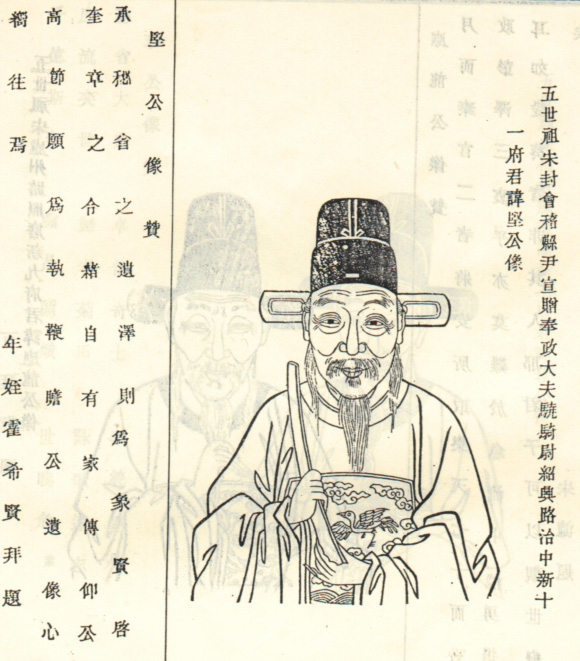 五世祖朱封會稽縣尹宣贈奉政大夫驍騎尉紹興路治中新十
一府君諱堅公像
堅公像贊
承秘省之遺澤則爲象賢啓
奎章之令緒自有家傳仰公
高節願爲執鞭瞻公遺像心
嚮往焉
年姪霍希賢拜題